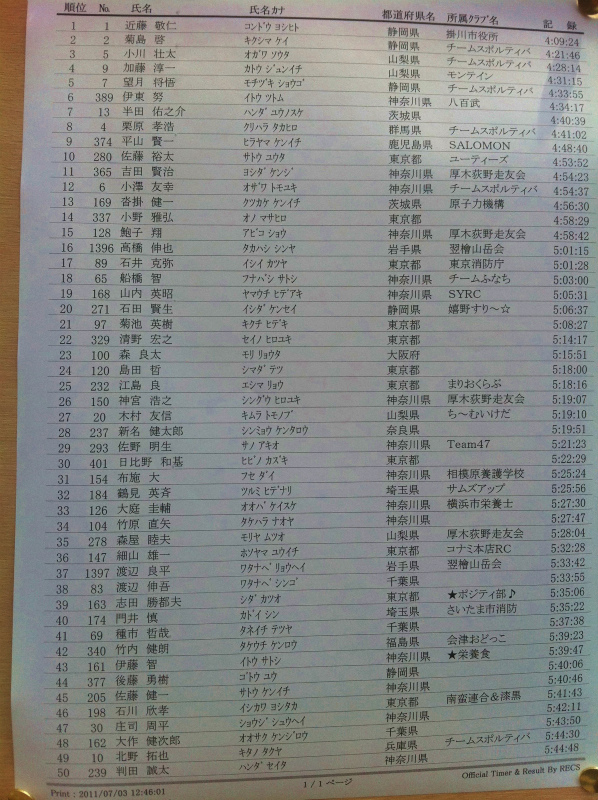 順位 No. 氏名 氏名カナ 都道府県名 所属クラブ名 記録
1 1 近藤 敬仁 コンドウ ヨシヒト 静岡県 掛川市役所 4:09:24
2 2 菊島 啓 キクシマ ケイ 静岡県 4:21:46
3 5 小川 壮太 オガワ ソウタ 山梨県 チームスポルティバ 4:28:14
4 9 加藤 淳一 カトウ ジュンイチ 山梨県 モンテイン 4:31:15
5 7 望月 将悟 モチヅキ ショウゴ 静岡県 チームスポルティバ 4:33:55
6 389 伊東 努 イトウ ツトム 神奈川県 八百武 4:34:17
7 13 半田 佑之介 ハンダ ユウノスケ 茨城県 4:40:39
8 4 栗原 孝浩 クリハラ タカヒロ 群馬県 チームスポルティバ 4:41:02
9 374 平山 賢一 ヒラヤマ ケンイチ 鹿児島県 SALOMON 4:48:40
10 280 佐藤 裕太 サトウ ユウタ 東京都 ユーティーズ 4:53:52
11 365 吉田 賢治 ヨシダ ケンジ 神奈川県 厚木荻野走友会 4:54:23
12 6 小澤 友幸 オザワ トモユキ 神奈川県 チームスポルティバ 4:54:37
13 169 沓掛 健一 クツカケ ケンイチ 茨城県 原子力機構 4:56:30
14 337 小野 雅弘 オノ マサヒロ 東京都 4:58:29
15 128 鮑子 翔 アビコ ショウ 神奈川県 厚木荻野走友会 4:58:42
16 1396 高橋 伸也 タカハシ シンヤ 岩手県 翌檜山岳会 5:01:15
17 89 石井 克弥 イシイ カツヤ 東京都 東京消防庁 5:01:28
18 65 船橋 智 フナバシ サトシ 神奈川県 チームふなち 5:03:00
19 168 山内 英昭 ヤマウチ ヒデアキ 神奈川県 SYRC 5:05:31
20 271 石田 賢生 イシダ ケンセイ 静岡県 嬉野すり～☆ 5:06:37
21 97 菊池 英樹 キクチ ヒデキ 東京都 5:08:27
22 329 清野 宏之 セイノ ヒロユキ 東京都 5:14:17
23 100 森 良太 モリ リョウタ 大阪府 5:15:51
24 120 島田 哲 シマダ テツ 東京都 5:18:00
25 232 江島 良 エシマ リョウ 東京都 まりおくらぶ 5:18:16
26 150 神宮 浩之 シングウ ヒロユキ 神奈川県 厚木荻野走友会 5:19:07
27 20 木村 友信 キムラ トモノブ 山梨県 ち～むいけだ 5:19:10
28 237 新名 健太郎 シンミョウ ケンタロウ 奈良県 5:19:51
29 293 佐野 明生 サノ アキオ 神奈川県 Team47 5:21:23
30 401 日比野 和基 ヒビノ カズキ 東京都 5:22:29
31 154 布施 大 フセ ダイ 神奈川県 相模原養護学校 5:25:24
32 184 鶴見 英斉 ツルミ ヒデナリ 埼玉県 サムズアップ 5:25:56
33 126 大庭 圭輔 オオバ ケイスケ 神奈川県 横浜市栄養士 5:27:30
34 104 竹原 直矢 タケハラ ナオヤ 神奈川県 5:27:47
35 278 森屋 睦夫 モリヤ ムツオ 山梨県 厚木荻野走友会 5:28:04
36 147 細山 雄一 ホソヤマ ユウイチ 東京都 コナミ本店RC 5:32:28
37 1397 渡辺 良平 ワタナベ リョウヘイ 岩手県 翌檜山岳会 5:33:42
38 83 渡辺 伸吾 ワタナベ シンゴ 千葉県 5:33:55
39 163 志田 勝都夫 シダ カツオ 東京都 ★ポジティ部♪ 5:35:06
40 174 門井 慎 カドイ シン 埼玉県 さいたま市消防 5:35:22
41 69 種市 哲哉 タネイチ テツヤ 千葉県 5:37:38
42 340 竹内 健朗 タケウチ ケンロウ 福島県 会津おどっこ 5:39:23
43 161 伊藤 智 イトウ サトシ 神奈川県 ★栄養食 5:39:47
44 377 後藤 勇樹 ゴトウ ユウ 静岡県 5:40:06
45 205 佐藤 健一 サトウ ケンイチ 神奈川県 5:40:46
46 198 石川 欣孝 イシカワ ヨシタカ 東京都 南蛮連合＆漆黒 5:41:43
47 30 庄司 周平 ショウジ シュウヘイ 神奈川県 5:42:11
48 162 大作 健次郎 オオサク ケンジロウ 千葉県 5:43:50
49 10 北野 拓也 キタノ タクヤ 兵庫県 チームスポルティバ 5:44:30
50 239 判田 誠太 ハンダ セイタ 神奈川県 5:44:48
Print : 2011/07/03 12:46:01 1 / 1 ページ Official Timer & Result By RECS